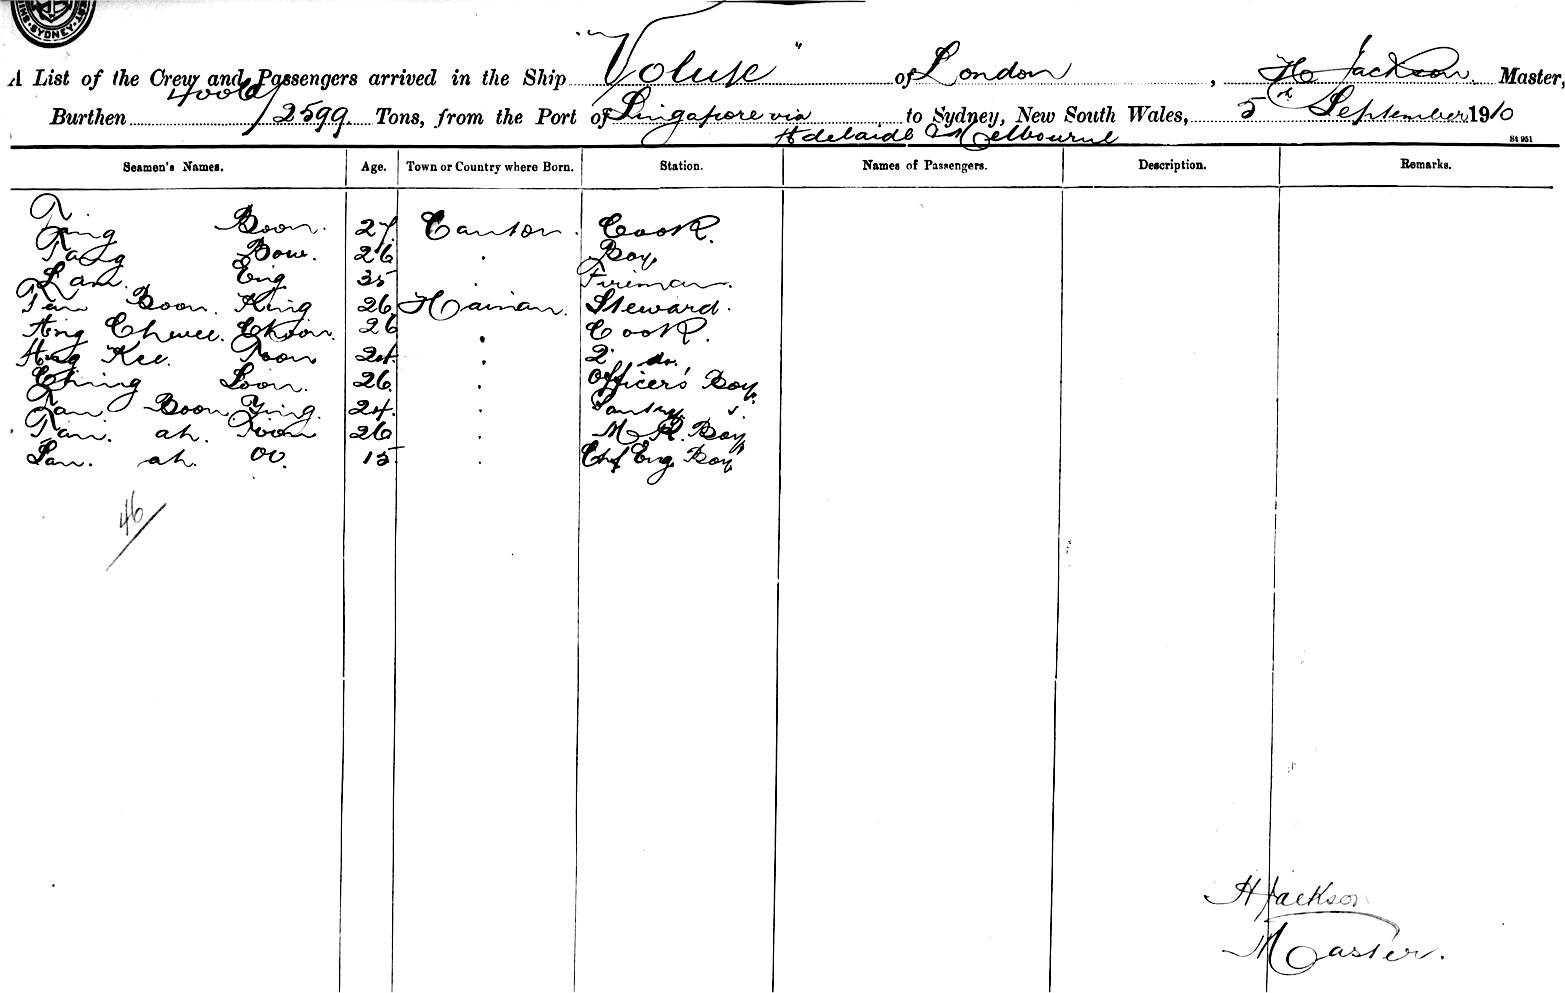 SYDNEY
A List of the Crew and Passengers arrived in the Ship "Volute" of London, H Jackson Master,
Burthen 4006/2599 Tons, from the Port of Singapore via Adelaide & Melbourne to Sydney, New South Wales, 5th September 1910
St 951
Seamen's Names. Age. Town or Country where Born. Station. Names of Passengers. Description. Remarks.
Ting Boon. 27. Canton. Cook.
Tang Bow. 26 " Boy
Lam. Eng 35 " Fireman.
Tan Boon King 26 Hainan. Steward.
Ang Chwee Choon. 26 " Cook.
Ang Kee Toon 24. " 2 do.
Ching Loon. 26. " Officers' Boy.
Tan Boon Ying. 24. " Pantry "
Tan. ah. Toon 26 " M. R. Boy
Lan. ah. 15 " Chf Eng Boy
46/
H Jackson
Master.